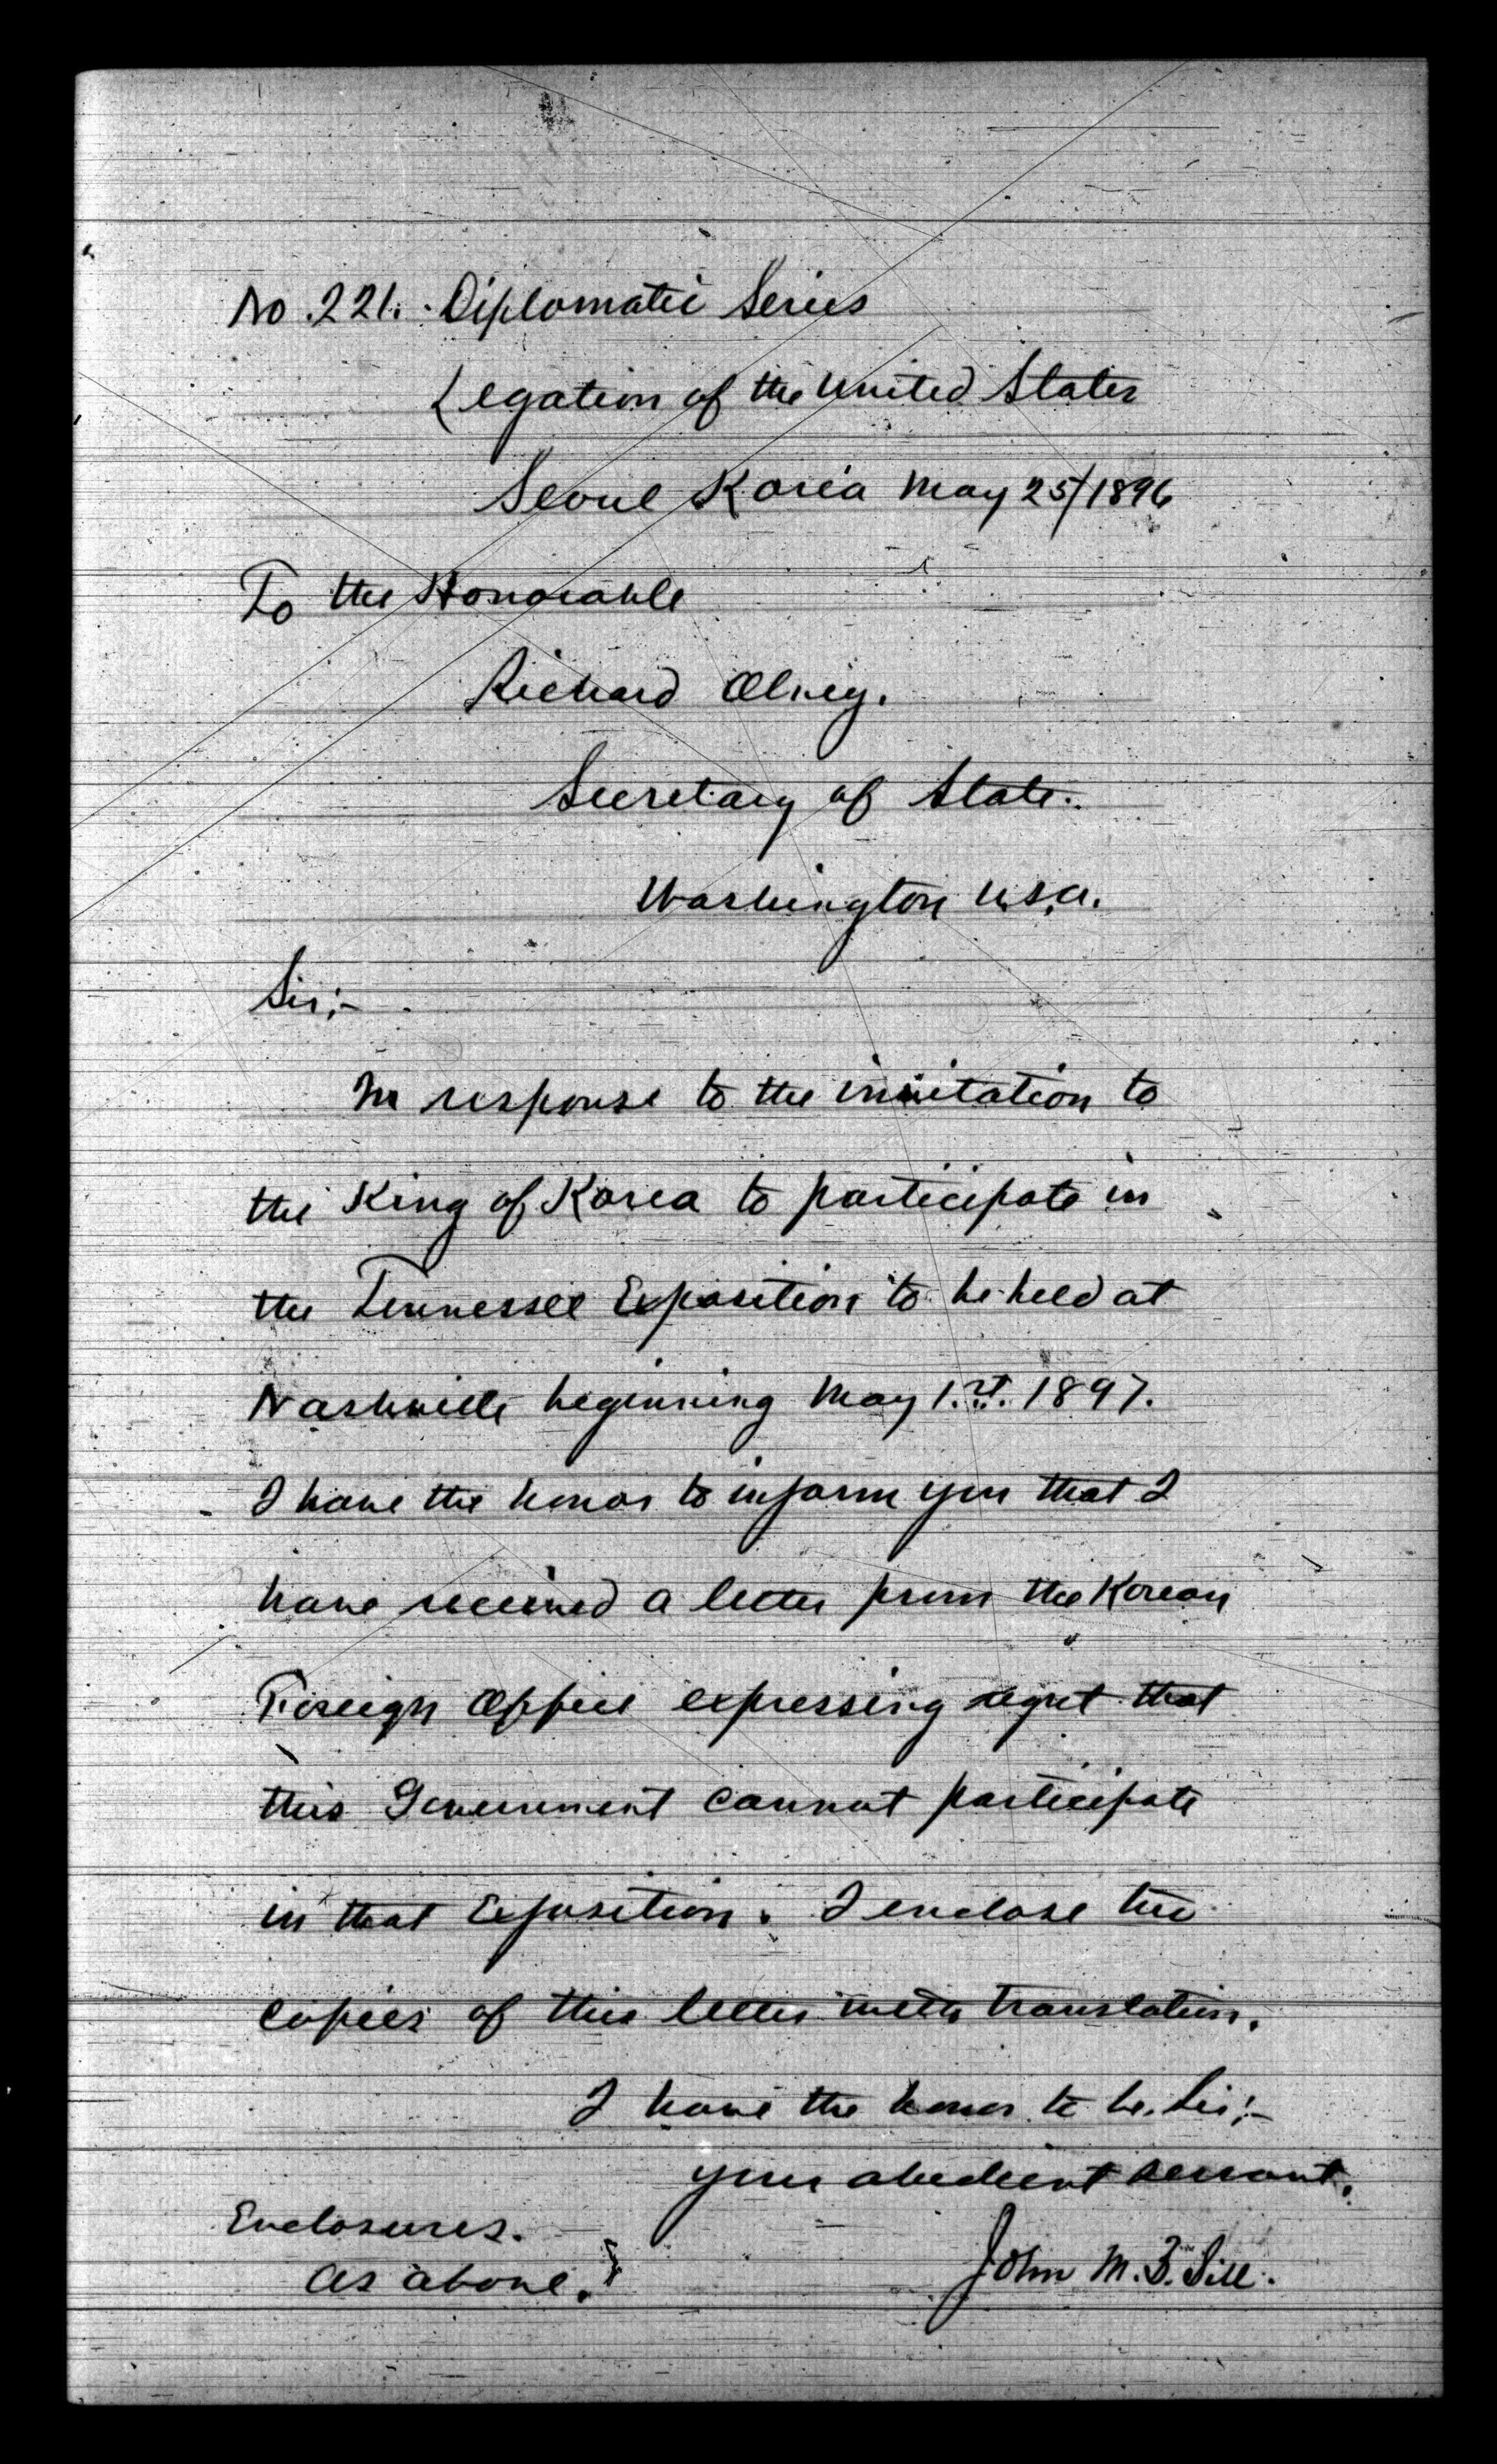 No. 221. Diplomatic Series
Legation of the United States
Seoul Korea May 25/1896
To the Honorable
Richard Olney.
Secretary of State.
Washington U.S.A.
Sir;-
In response to the invitation to
the King of Korea to participate in
the Tennessee Exposition to be held at
Nashville beginning May 1.st. 1897.
I have the honor to inform you that I
have received a letter from the Korean
Foreign Office expressing regret that
this Government cannot participate
in that Exposition. I enclose two
copies of this letter with translation.
I have the honor to be. Sir;-
your obedient servant.
Enclosures.
As above.}
John M. B. Sill.